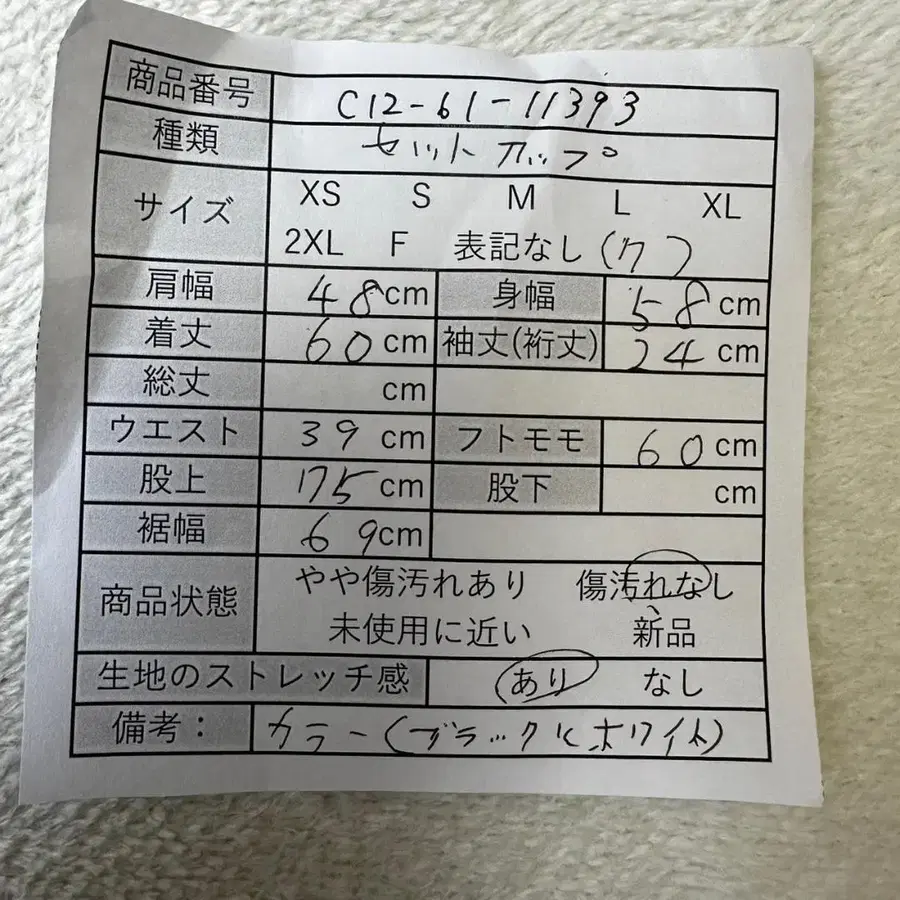 商品番号 C12-61-11393
種類 セットアップ
サイズ XS S M L XL
2XL F 表記なし(ク)
肩幅 48cm 身幅 58cm
着丈 60cm 袖丈(裄丈) 24cm
総丈 cm
ウエスト 39cm フトモモ 60cm
股上 175cm 股下 cm
裾幅 69cm
商品状態 やや傷汚れあり 傷汚れなし
未使用に近い 新品
生地のストレッチ感 あり なし
備考: カラー(ブラックにホワイト)